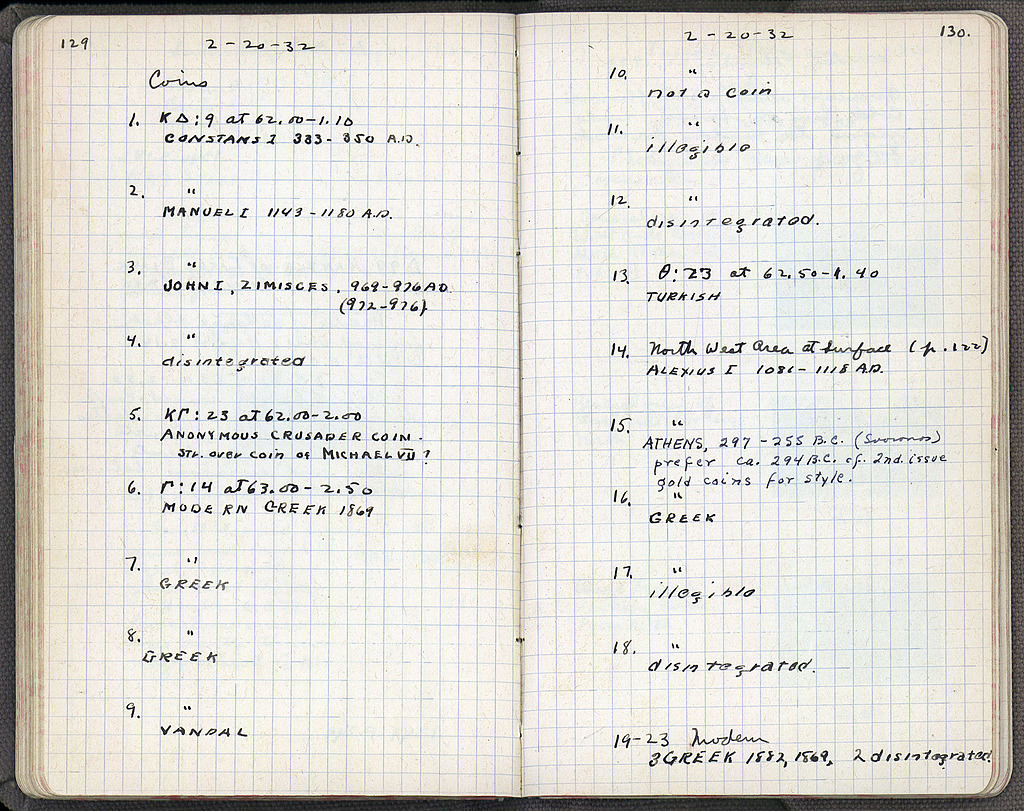 129
2-20-32
Coins
1. ΚΔ:9 at 62.00-1.10
CONSTANS I 333-350 A.D.
2. "
MANUEL I 1143-1180 A.D.
3. "
JOHN I, ZIMISCES, 969-976 AD
(972-976)
4. "
disintegrated
5. ΚΓ:23 at 62.00-2.00
ANONYMOUS CRUSADER COIN.
Str. over coin of MICHAEL VII ?
6. Γ:14 at 63.00-2.50
MODERN GREEK 1869
7. "
GREEK
8. "
GREEK
9. "
VANDAL
2-20-32
130.
10. "
not a coin
11. "
illegible
12. "
disintegrated.
13. Θ:23 at 62.50-1.40
TURKISH
14. North West Area at Surface (p. 122)
ALEXIUS I 1081-1118 A.D.
15. "
ATHENS, 297-255 B.C. (Svoronos)
prefer ca. 294 B.C. cf. 2nd. issue
gold coins for style.
16. "
GREEK
17. "
illegible
18. "
disintegrated.
19-23 Modern
3 GREEK 1882, 1869, 2 disintegrated.